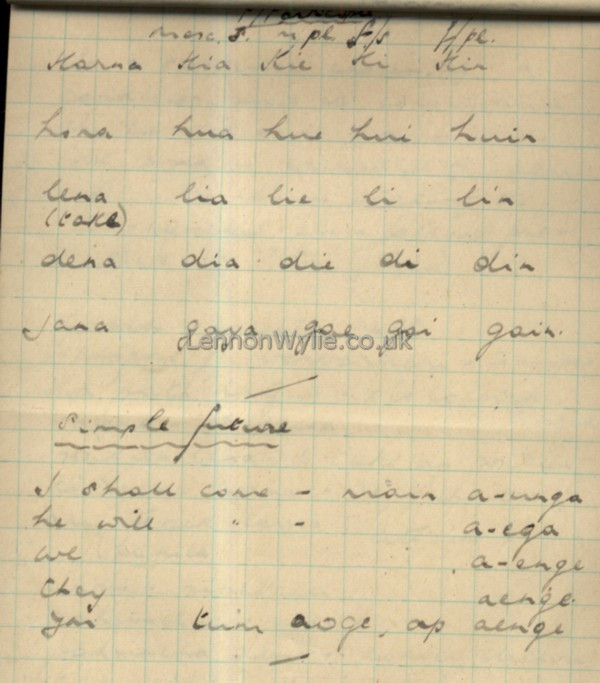 P/Participle
masc. s. m pl. f/s f/pl.
Karna Kia Kie Ki Kin
hona hua hue hui huin
lena lia lie li lin
(take)
dena dia die di din
Jana gaya gae gai gain.
LennonWylie.co.uk
Simple future
I shall come - main a-unga
he will " - a-ega
we a-enge
they aenge.
you tum aoge, ap aenge